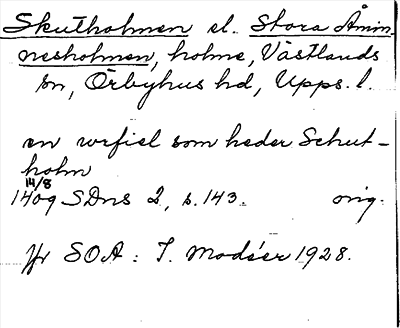 Skutholmen el. Stora Åmin-
nesholmen, holme, Västlands
sn, Örbyhus hd, Upps. l.
en wrfiel som heder Schut-
holm
14/8
1409 SDns 2, s. 143. orig.
Jfr SOA: I. Modéer 1928.